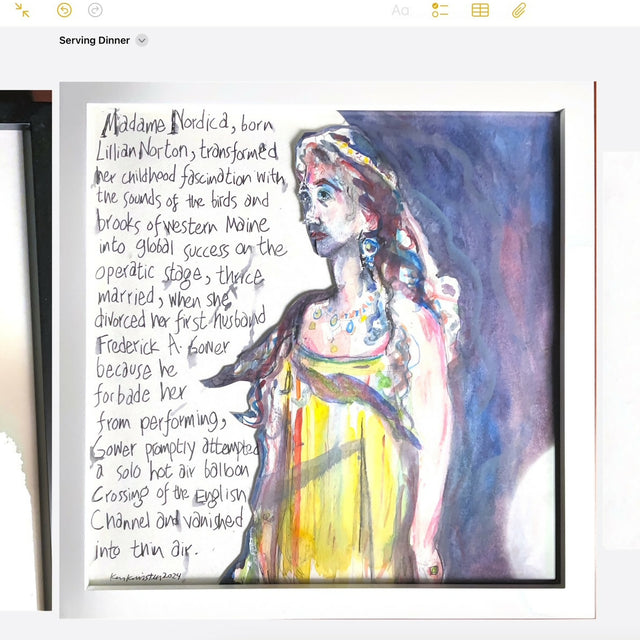 Aa
Serving Dinner
Madame Nordica, born
Lillian Norton, transformed
her childhood fascination with
the sounds of the birds and
brooks of western Maine
into global success on the
operatic stage, thrice
married, when she
divorced her first husband
Frederick A. Gower
because he
forbade her
from performing,
Gower promptly attempted
a solo hot air balloon
Crossing of the English
Channel and vanished
into thin air.
2024